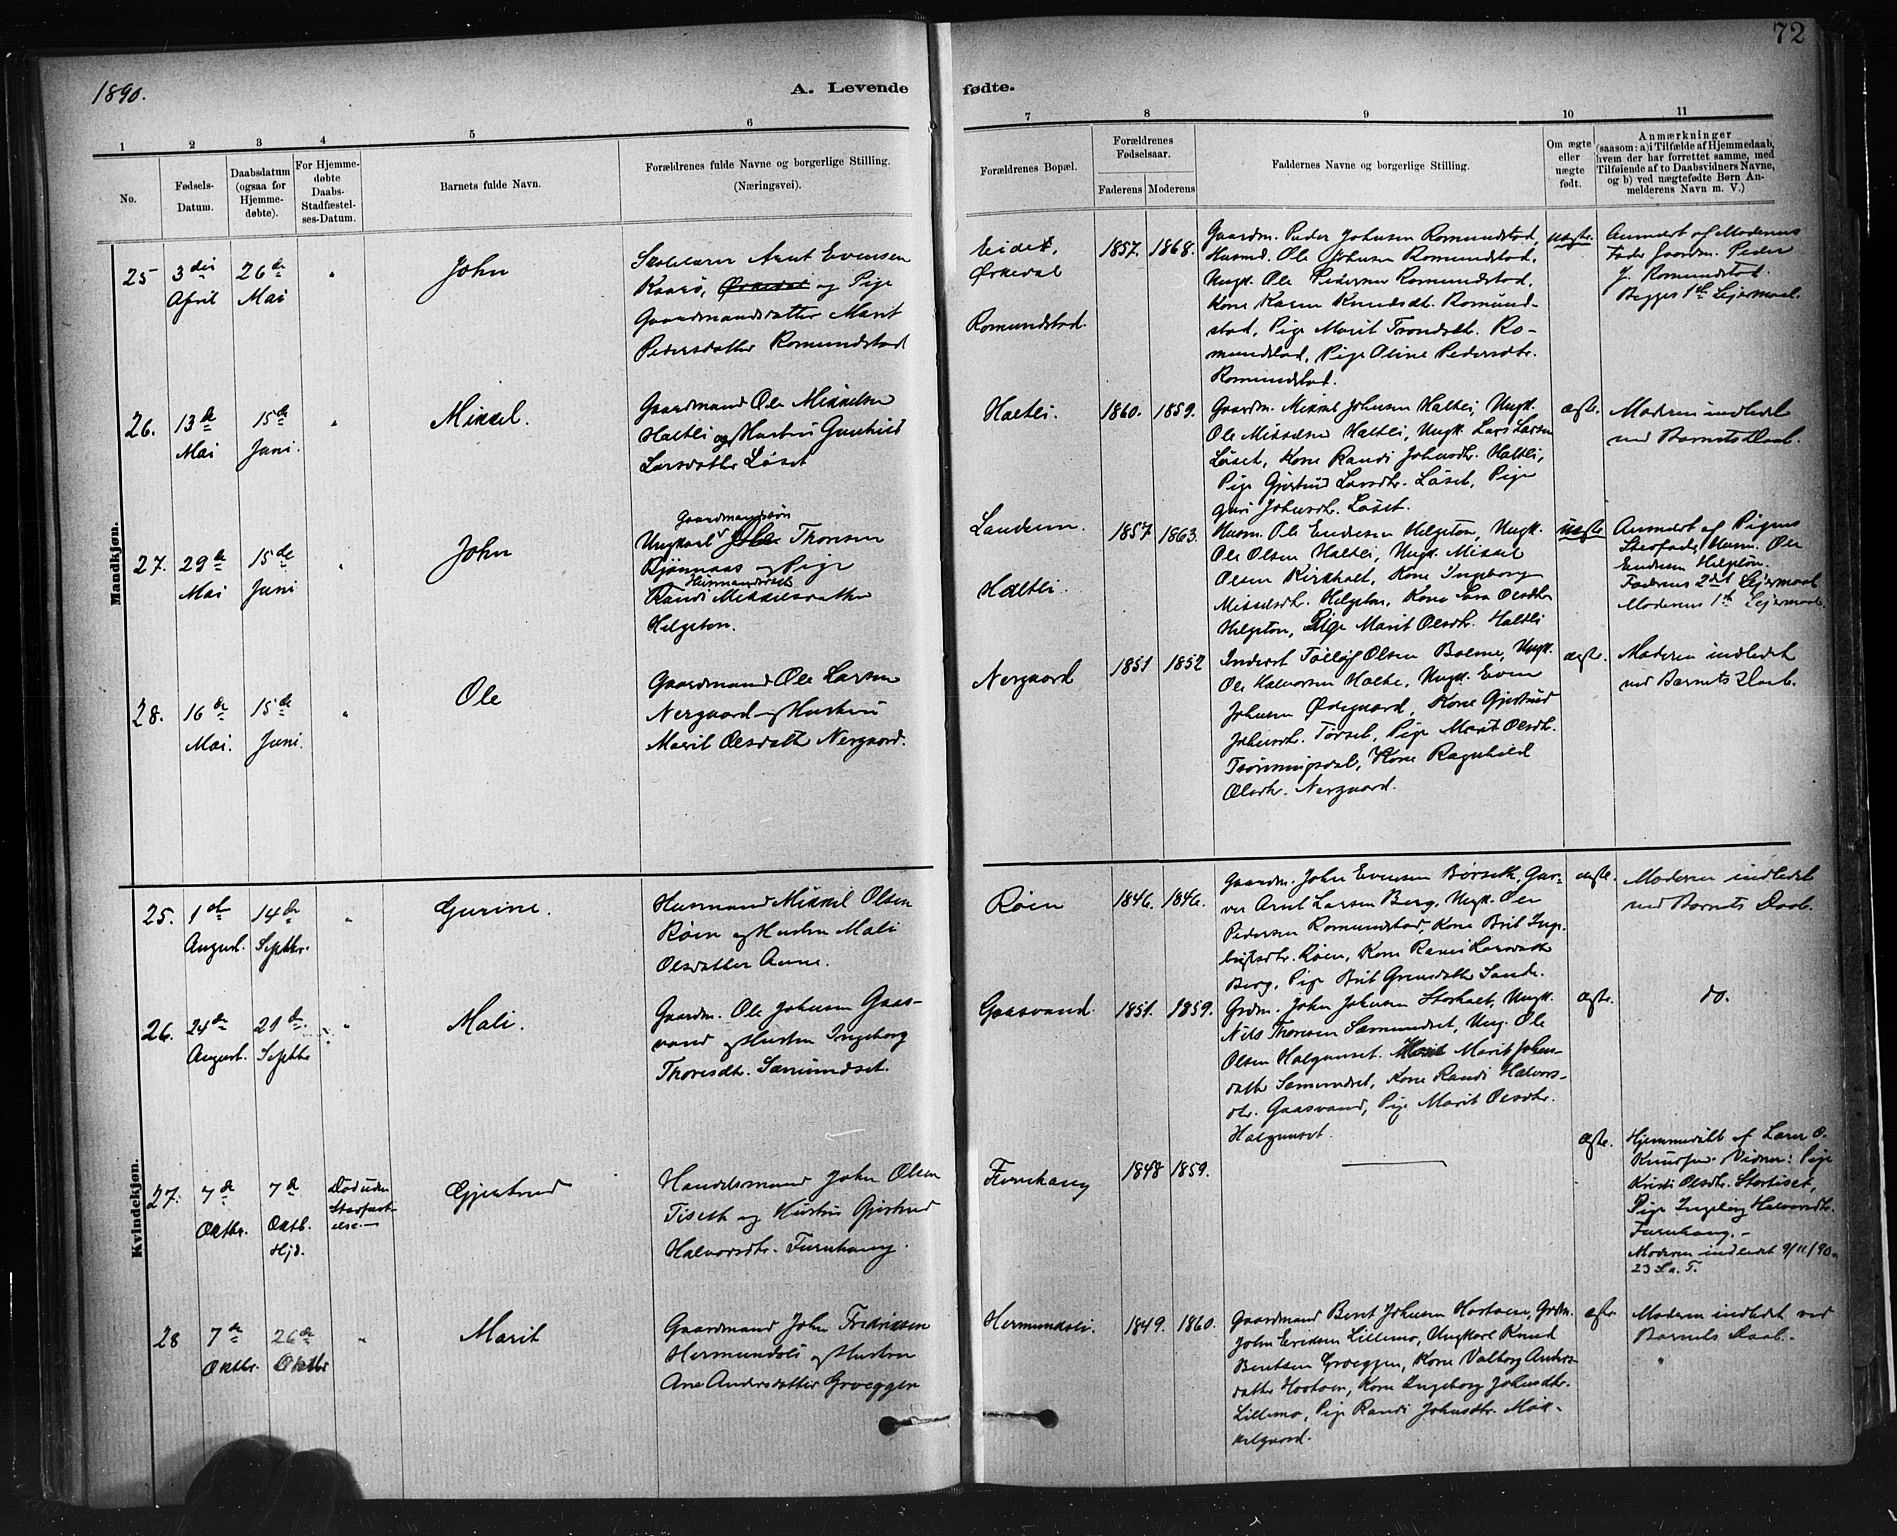 72
1890.
A. Levende fødte.
1 2 3 4 5 6 7 8 9 10 11
No.
Fødsels-Datum.
Daabsdatum (ogsaa for Hjemme-døbte).
For Hjemme-døbte Daabs-Stadfæstel-ses-Datum.
Barnets fulde Navn.
Forældrenes fulde Navne og borgerlige Stilling.
(Næringsvei).
Forældrenes Bopæl.
Forældrenes Fødselsaar.
Faderens Moderens
Faddernes Navne og borgerlige Stilling.
Om ægte eller uægte født.
Anmærkninger
(saasom: a) i Tilfælde af Hjemmedaab,
hvem der har forrettet samme, med
Tilføiende af to Daabsvidners Navne,
og b) ved uægtefødte Børn An-
melderens Navn m. V.)
Mandkjøn.
25
3die April
26de Mai
"
John
Skolelærer Arnt Evensen
Kaarø, Ørkedal og Pige
Gaardmandsdatter Marit
Pedersdatter Romundstad
Eidet,
Ørkedal
Romundstad.
1857. 1868.
Gaardm. Peder Johnsen Romundstad,
Husmd. Ole Johnsen Romundstad,
Ungk. Ole Pedersen Romundstad,
Kone Karen Knudsdt. Romund-
stad, Pige Marit Trondsdtr. Ro-
mundstad, Pige Oline Pedersdtr.
Romundstad.
uægte.
Anmeldt af Moderens
Fader Gaardm. Peder
J. Romundstad.
Begges 1ste Lejermaal.
26.
13de Mai
15de Juni.
"
Mikkel.
Gaardmand Ole Mikkelsen
Haltli og Hustru Gunhild
Larsdatter Løset
Haltli.
1860. 1859.
Gaardm. Mikkel Johnsen Haltli, Ungk.
Ole Mikkelsen Haltli, Ungk. Lars Larsen
Løset, Kone Randi Johnsdtr. Haltli,
Pige Gjertrud Larsdtr. Løset, Pige
Guri Johnsdtr. Løset.
ægte.
Moderen indledet
ved Barnets Daab.
27.
29de Mai
15de Juni
"
John
Gaardmandssøn
Ungkarl John Thoresen
Bjønnaas og Pige
Husmandsdatt
Randi Mikkelsdatter
Helgeton.
Landrum.
Haltli.
1857 1863.
Husm. Ole Endresen Helgeton, Ungk.
Ole Olsen Haltli, Ungk. Mikkel
Olsen Kirkholt, Kone Ingeborg
Mikkelsdtr. Helgeton, Kone Sara Olsdtr.
Helgeton, Pige Marit Olsdtr. Haltli
uægte
Anmeldt af Pigens
Stedfader, Husm. Ole
Endresen Helgeton.
Faderens 2det Lejermaal
Moderens 1ste Lejermaal.
28.
16de Mai.
15de Juni.
"
Ole
Gaardmand Ole Larsen
Nergaard og Hustru
Marit Olsdatter Nergaard.
Nergaard
1851 1852
Inderst Tøllef Olsen Bolme, Ungk.
Ole Halvorsen Holte, Ungk. Even
Johnsen Ødegaard, Kone Gjertrud
Johnsdtr. Tørset, Pige Marit Olsdtr.
Trønningsdal, Kone Ragnhild
Olsdtr. Nergaard.
ægte.
Moderen indledet
ved Barnets Daab.
Kvindekjøn.
25.
1ste August.
14de Septbr.
"
Gurine.
Husmand Mikkel Olsen
Røen og Hustru Mali
Olsdatter Aune.
Røen
1846. 1846.
Gaardm. John Evensen Børseth, Gar-
ver Arnt Larsen Berg, Ungk. Ole
Pedersen Romundstad, Kone Brit Inge-
brigtsdtr. Røen, Kone Randi Larsdatter
Berg, Pige Brit Grensdatter Sande.
ægte.
Moderen indledet
ved Barnets Daab.
26.
24de August.
21de Septbr
"
Mali.
Gaardm. Ole Johnsen Gaas-
vand og Hustru Ingeborg
Thoresdtr. Sæmundset.
Gaasvand.
1851. 1859.
Grdm. John Johnsen Storholt, Ungk.
Nils Thoresen Sæmundset, Ung. Ole
Olsen Halgunset. Marit Johns-
datter Sæmundset, Kone Randi Halvors-
dtr. Gaasvand, Pige Marit Olsdtr.
Halgunset.
ægte.
do.
27.
7de Oktbr.
7de Oktb. Hjd.
Død uden
Stadfæst-
else.
Gjertrud
Handelsmand John Olsen
Tiseth og Hustru Gjertrud
Halvorsdtr. Furuhaug.
Furuhaug
1848 1859.
ægte.
Hjemmedøbt af Lærer O.
Knudsen. Vidner: Pige
Kristi Olsdtr. Stortiset,
Pige Ingeborg Halvorsdtr.
Furuhaug.
Moderen indledet 9/11/90
23 S. a. T.
28
7de Oktbr.
26de Oktbr
"
Marit
Gaardmand John Fredriksen
Hermundsli og Hustru
Ane Andersdatter Groeggen
Hermundsli.
1849. 1860.
Gaardmand Bent Johnsen Hostoen, Grdm.
John Eriksen Lillemo, Ungkarl Knud
Bentsen Groeggen, Kone Valborg Anders-
datter Hostoen, Kone Ingeborg Johnsdtr.
Lillemo, Pige Randi Johnsdtr. Mik-
kelgaard.
ægte.
Moderen indledet ved
Barnets Daab.